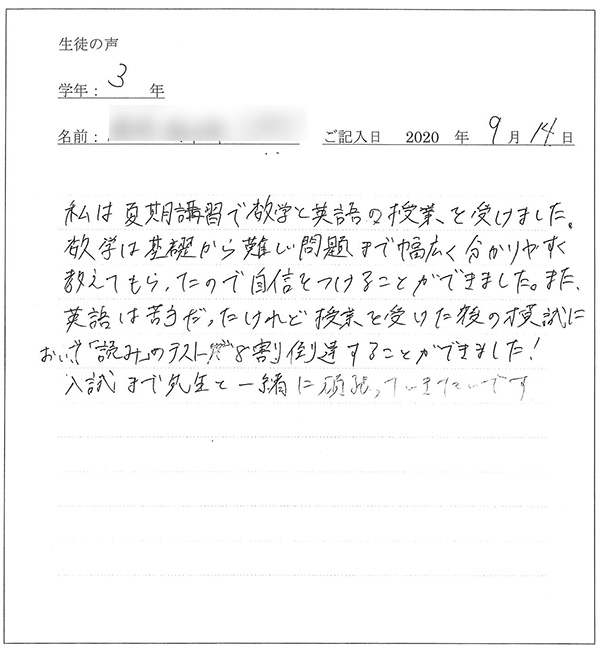 生徒の声
学年：3 年
名前：
ご記入日 2020 年 9 月 14 日
私は夏期講習で数学と英語の授業を受けました。
数学は基礎から難しい問題まで幅広く分かりやすく
教えてもらったので自信をつけることができました。また、
英語は苦手だったけれど授業を受けた後の模試に
おいて「読み」のテストが8割倒達することができました！
入試まで先生と一緒に頑張っていきたいです